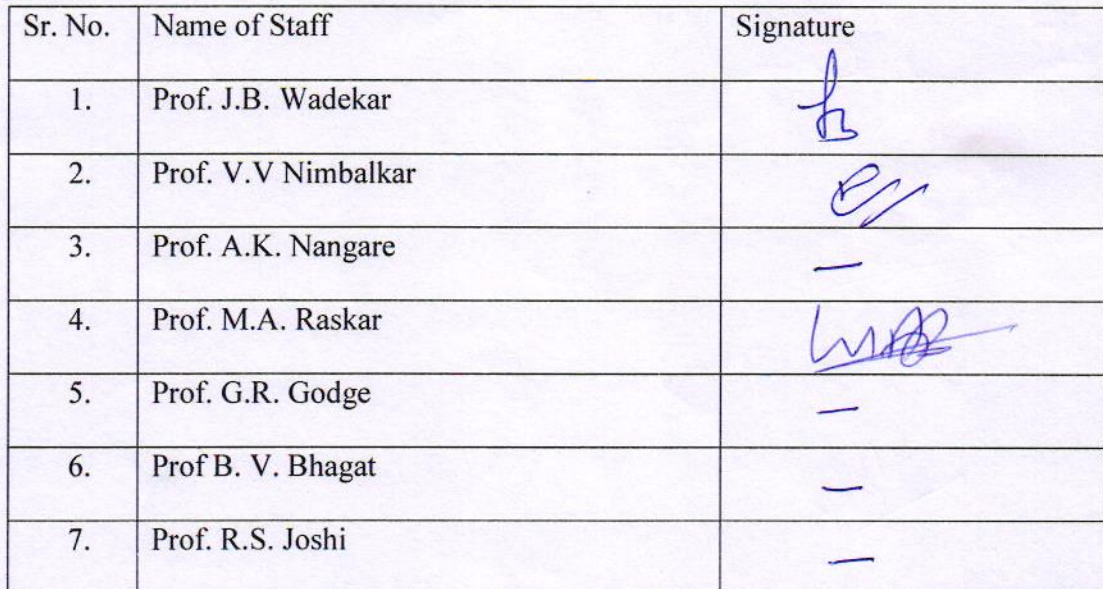 Sr. No. Name of Staff Signature
1. Prof. J.B. Wadekar
2. Prof. V.V Nimbalkar
3. Prof. A.K. Nangare —
4. Prof. M.A. Raskar
5. Prof. G.R. Godge —
6. Prof B. V. Bhagat —
7. Prof. R.S. Joshi —